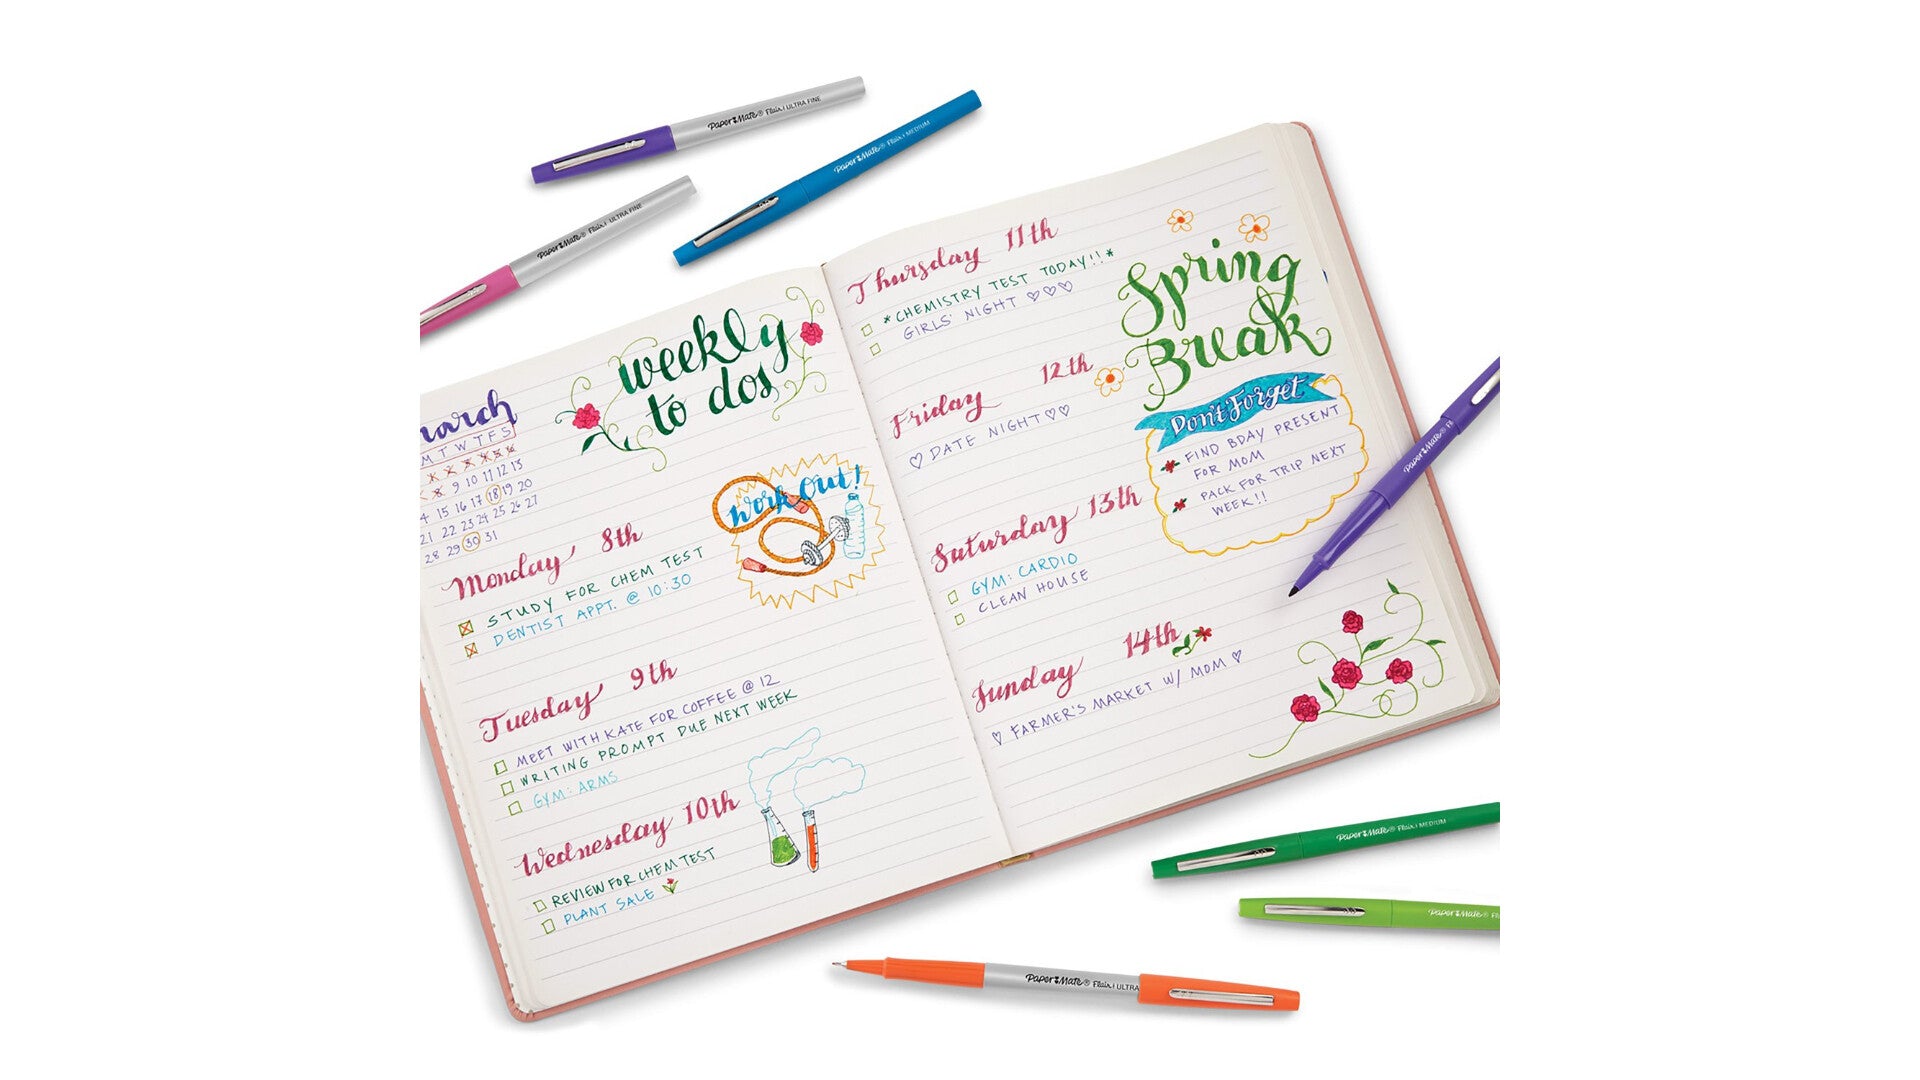 Paper Mate® Flair. ULTRA FINE
Paper Mate® Flair. MEDIUM
Paper Mate® Flair. ULTRA FINE
weekly
to dos
arch
M T W T F S
9 10 11 12 13
4 15 16 17 18 19 20
21 22 23 24 25 26 27
28 29 30 31
Work Out!
Monday 8th
STUDY FOR CHEM TEST
DENTIST APPT. @ 10:30
Tuesday 9th
MEET WITH KATE FOR COFFEE @ 12
WRITING PROMPT DUE NEXT WEEK
GYM: ARMS
Wednesday 10th
REVIEW FOR CHEM TEST
PLANT SALE
Thursday 11th
*CHEMISTRY TEST TODAY!!*
GIRLS' NIGHT ♡♡♡
Friday 12th
♡ DATE NIGHT ♡♡
Saturday 13th
GYM: CARDIO
CLEAN HOUSE
Sunday 14th
♡ FARMER'S MARKET W/ MOM ♡
Spring
Break
Don't Forget
FIND BDAY PRESENT
FOR MOM
PACK FOR TRIP NEXT
WEEK!!
Paper Mate® Fl
Paper Mate® Flair. MEDIUM
Paper Mate® Fl
Paper Mate® Flair. ULTRA